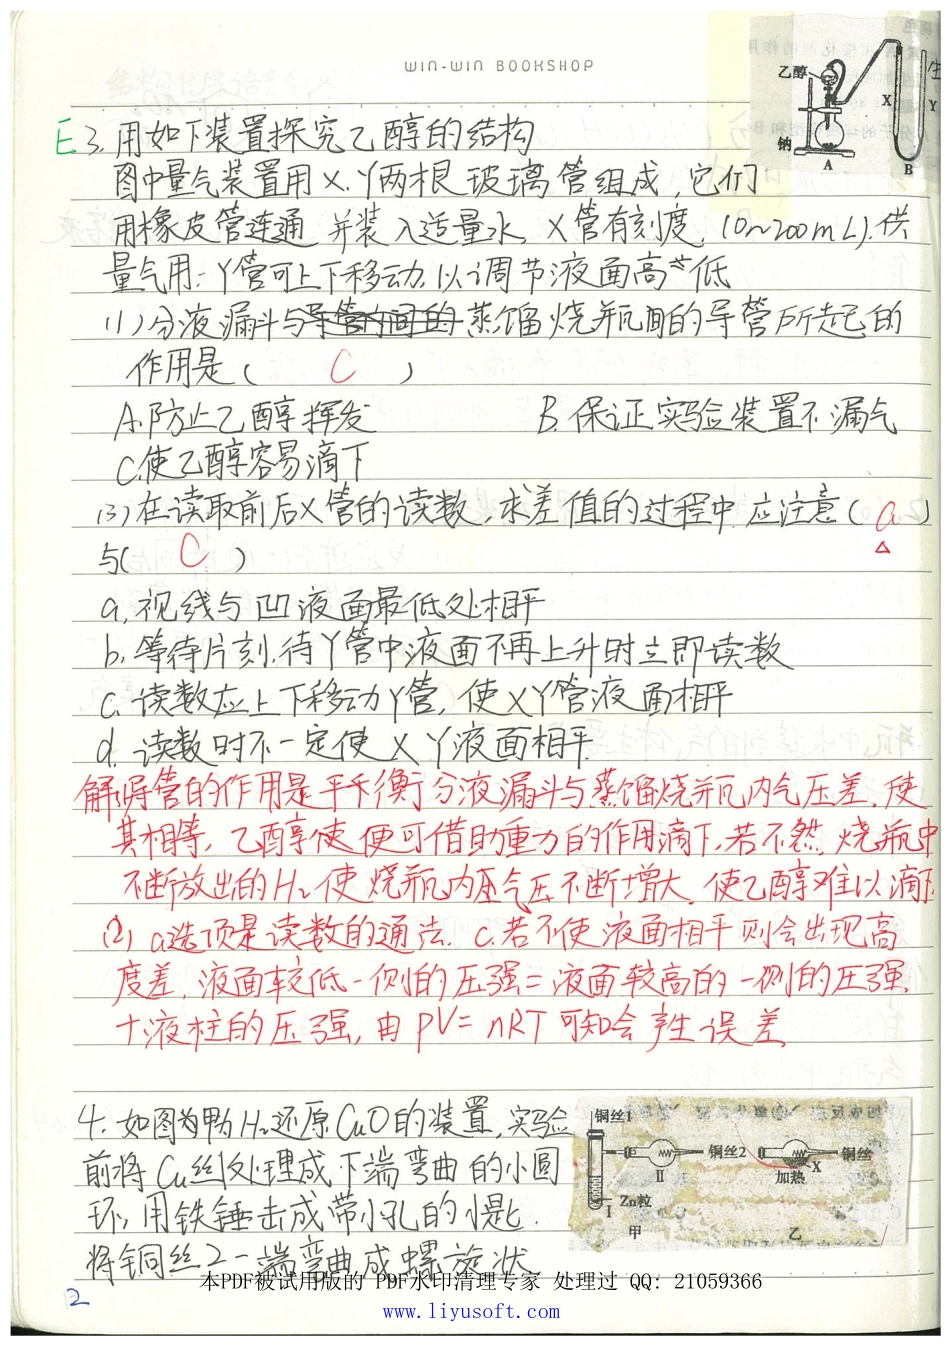 WIN-WIN BOOKSHOP
乙醇
X
Y
钠
A
B
E 3. 用如下装置探究乙醇的结构
图中量气装置用X、Y两根玻璃管组成,它们
用橡皮管连通 并装入适量水, X管有刻度, (0~200mL).供
量气用; Y管可上下移动,以调节液面高低
(1) 分液漏斗与导管间的蒸馏烧瓶间的导管所起的
作用是 ( C )
A.防止乙醇挥发 B.保证实验装置不漏气
C.使乙醇容易滴下
(3) 在读取前后X管的读数,求差值的过程中 应注意 ( a )
与( C )
a,视线与凹液面最低处相平
b,等待片刻,待Y管中液面不再上升时立即读数
c. 读数应上下移动Y管, 使XY管液面相平
d. 读数时不一定使X Y液面相平
解:(1)导管的作用是平衡分液漏斗与蒸馏烧瓶内气压差,使
其相等, 乙醇使便可借助重力的作用滴下,若不然,烧瓶中
不断放出的H₂使烧瓶内压气压不断增大,使乙醇难以滴下
(2) a选项是读数的通法. c.若不使液面相平则会出现高
度差,液面较低一侧的压强=液面较高的一侧的压强
+液柱的压强,由PV=nRT可知会产生误差
4. 如图为甲为H₂还原CuO的装置,实验
前将Cu丝处理成下端弯曲的小圆
环,用铁锤击成带小孔的小匙.
将铜丝2一端弯曲成螺旋状
铜丝1
铜丝2
铜丝
II
X
加热
Zn粒
I
甲
乙
本PDF被试用版的 PDF水印清理专家 处理过 QQ: 21059366
2
www.liyusoft.com